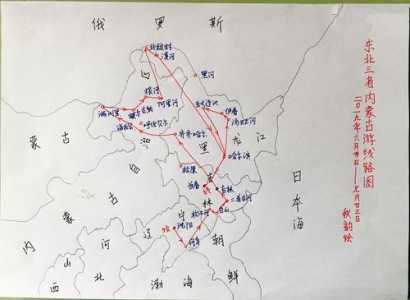 东北三省内蒙古游线路图
二〇一九年六月廿日——七月廿三日
秋韵绘
俄罗斯
北极村
漠河
黑河
根河
满洲里
阿里河
五大连池
伊春
海拉尔
呼伦贝尔
齐齐哈尔
黑
龙
江
哈尔滨
蒙古
内蒙古自治
日本海
松原
长春
吉林
二道白河
吉
林
白山
沈阳
丹东
辽
宁
朝
鲜
河
北
山
西
渤海